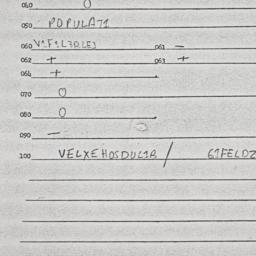 040 0
050 POPULA71
060 V1F1L7DLEJ 061 —
062 + 063 +
064 +
070 0
080 0
090 —
100 VELXEHOSDUL1B / 61FELDZ